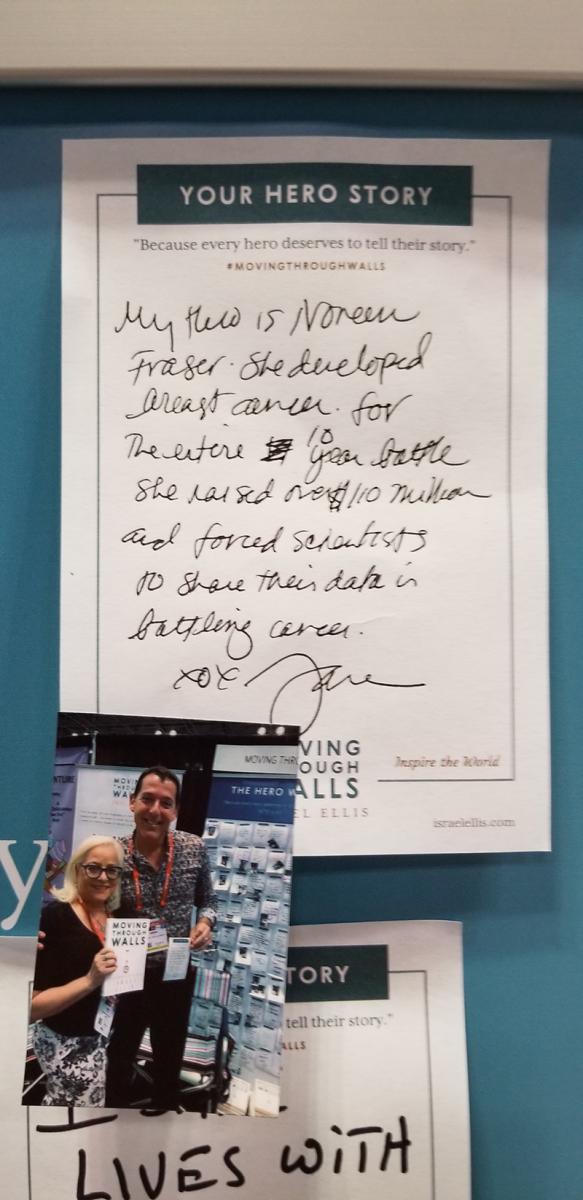 YOUR HERO STORY
"Because every hero deserves to tell their story."
#MOVINGTHROUGHWALLS
My Hero is Noreen
Fraser. She developed
breast cancer. for
The entire 10 year battle
She raised over $110 million
and forced scientists
to share their data in
battling cancer.
xox Jane
VING
OUGH
ALLS
EL ELLIS
Inspire the World
israelellis.com
MOVING THR
THE HERO W
MOVING
THROUGH
WALLS
NTURE
y
TORY
tell their story."
ALLS
LIVES WITH